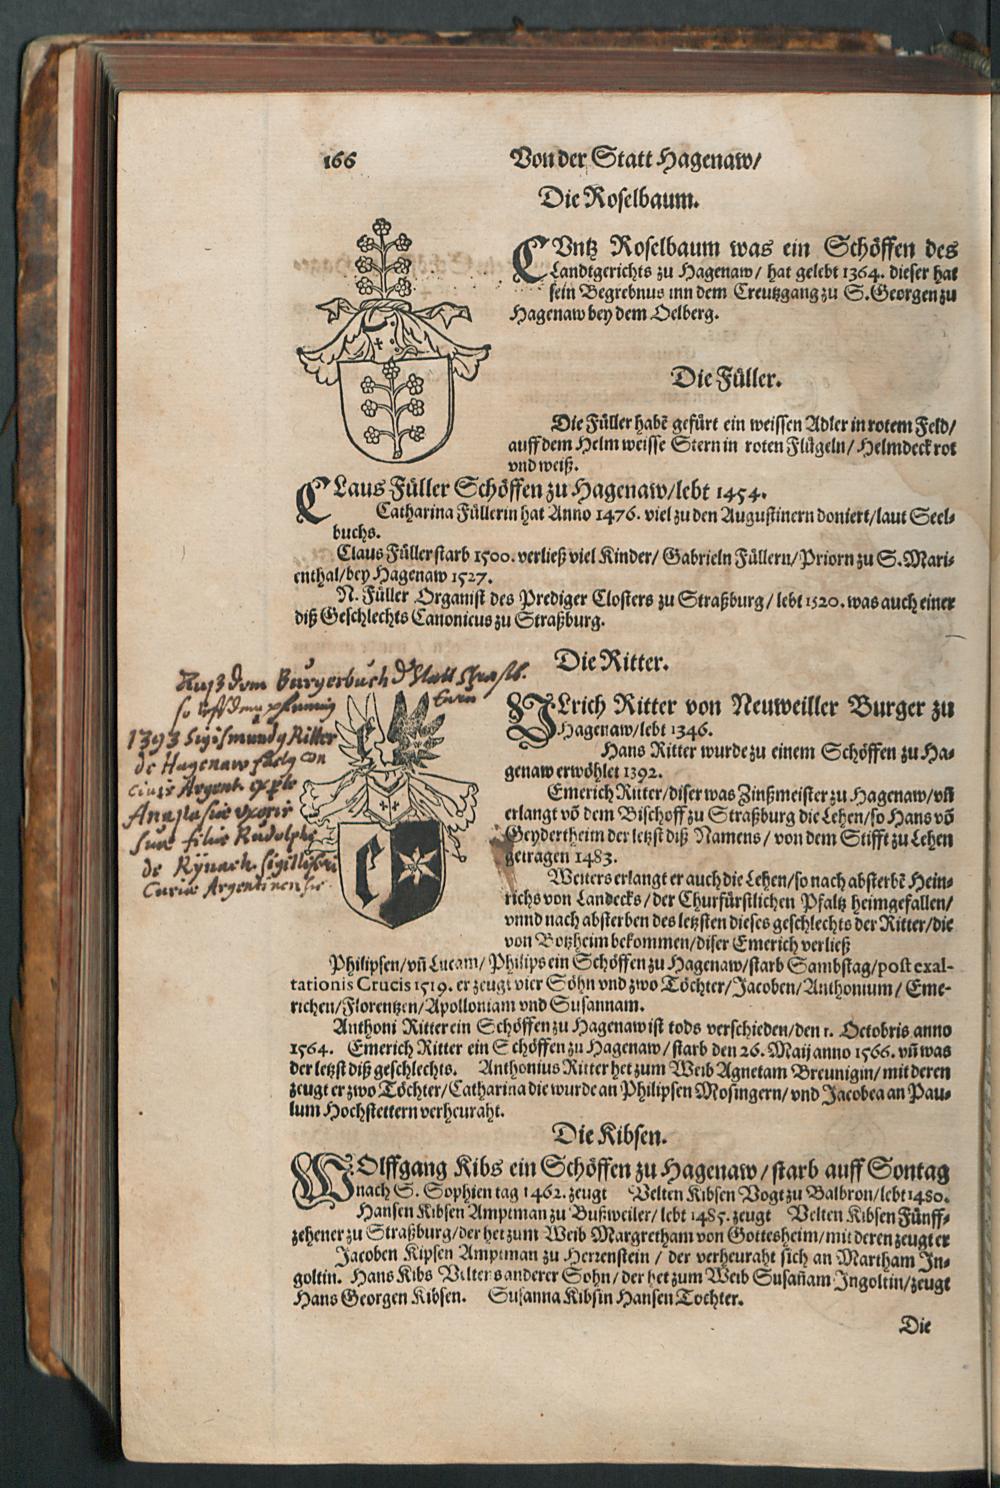 166
Von der Statt Hagenaw/
Die Roselbaum.
CVntz Roselbaum was ein Schöffen des
Landtgerichts zu Hagenaw/ hat gelebt 1364. dieser hat
sein Begrebnus inn dem Creutzgang zu S. Georgen zu
Hagenaw bey dem Oelberg.
Die Füller.
Die Füller habē gefürt ein weissen Adler in rotem Feld/
auff dem Helm weisse Stern in roten Flügeln/ Helmdeck rot
vnd weiß.
CLaus Füller Schöffen zu Hagenaw/lebt 1454.
Catharina Füllerin hat Anno 1476. viel zu den Augustinern doniert/laut Seel-
buchs.
Claus Füller starb 1500. verließ viel Kinder/ Gabrieln Füllern/Priorn zu S. Mari-
enthal/bey Hagenaw 1527.
N. Füller Organist des Prediger Closters zu Straßburg/ lebt 1520. was auch einer
diß Geschlechts Canonicus zu Straßburg.
Die Ritter.
Auß dem Burgerbuch
1393 Sigismundq Ritter
de Hagenaw
Argent.
Anastasie vxoris
sue filie Rudolphi
de Rynach.
Curie Argentinensis
VLrich Ritter von Neuweiller Burger zu
Hagenaw/lebt 1346.
Hans Ritter wurde zu einem Schöffen zu Ha-
genaw erwöhlet 1392.
Emerich Ritter/diser was Zinßmeister zu Hagenaw/vñ
erlangt võ dem Bischoff zu Straßburg die Lehen/so Hans võ
Geydertheim der letzst diß Namens/ von dem Stifft zu Lehen
getragen 1483.
Weiters erlangt er auch die Lehen/so nach absterbē Hein-
richs von Landecks/der Churfürstlichen Pfaltz heimgefallen/
vnnd nach absterben des letzsten dieses geschlechts der Ritter/die
von Botzheim bekommen/diser Emerich verließ
Philipsen/vñ Lucam/ Philips ein Schöffen zu Hagenaw/starb Sambstag/post exal-
tationis Crucis 1519. er zeugt vier Söhn vnd zwo Töchter/Jacoben/Anthonium/ Eme-
richen/Florentzen/Apolloniam vnd Susannam.
Anthoni Ritter ein Schöffen zu Hagenaw ist tods verschieden/den 1. Octobris anno
1564. Emerich Ritter ein Schöffen zu Hagenaw/ starb den 26. Maij anno 1566. vñ was
der letzst diß geschlechts. Anthonius Ritter het zum Weib Agnetam Breunigin/ mit deren
zeugt er zwo Töchter/Catharina die wurde an Philipsen Mosingern/ vnd Jacobea an Pau-
lum Hochstettern verheuraht.
Die Kibsen.
WOlffgang Kibs ein Schöffen zu Hagenaw/starb auff Sontag
nach S. Sophien tag 1462. zeugt Velten Kibsen Vogt zu Balbron/lebt 1480.
Hansen Kibsen Amptman zu Bußweiler/ lebt 1485. zeugt Velten Kibsen Fünff-
zehener zu Straßburg/der het zum Weib Margretham von Gottesheim/mit deren zeugt er
Jacoben Kipsen Amptman zu Herrenstein / der verheuraht sich an Martham In-
goltin. Hans Kibs Veltens anderer Sohn/der het zum Weib Susañam Ingoltin/zeugt
Hans Georgen Kibsen. Susanna Kibsin Hansen Tochter.
Die